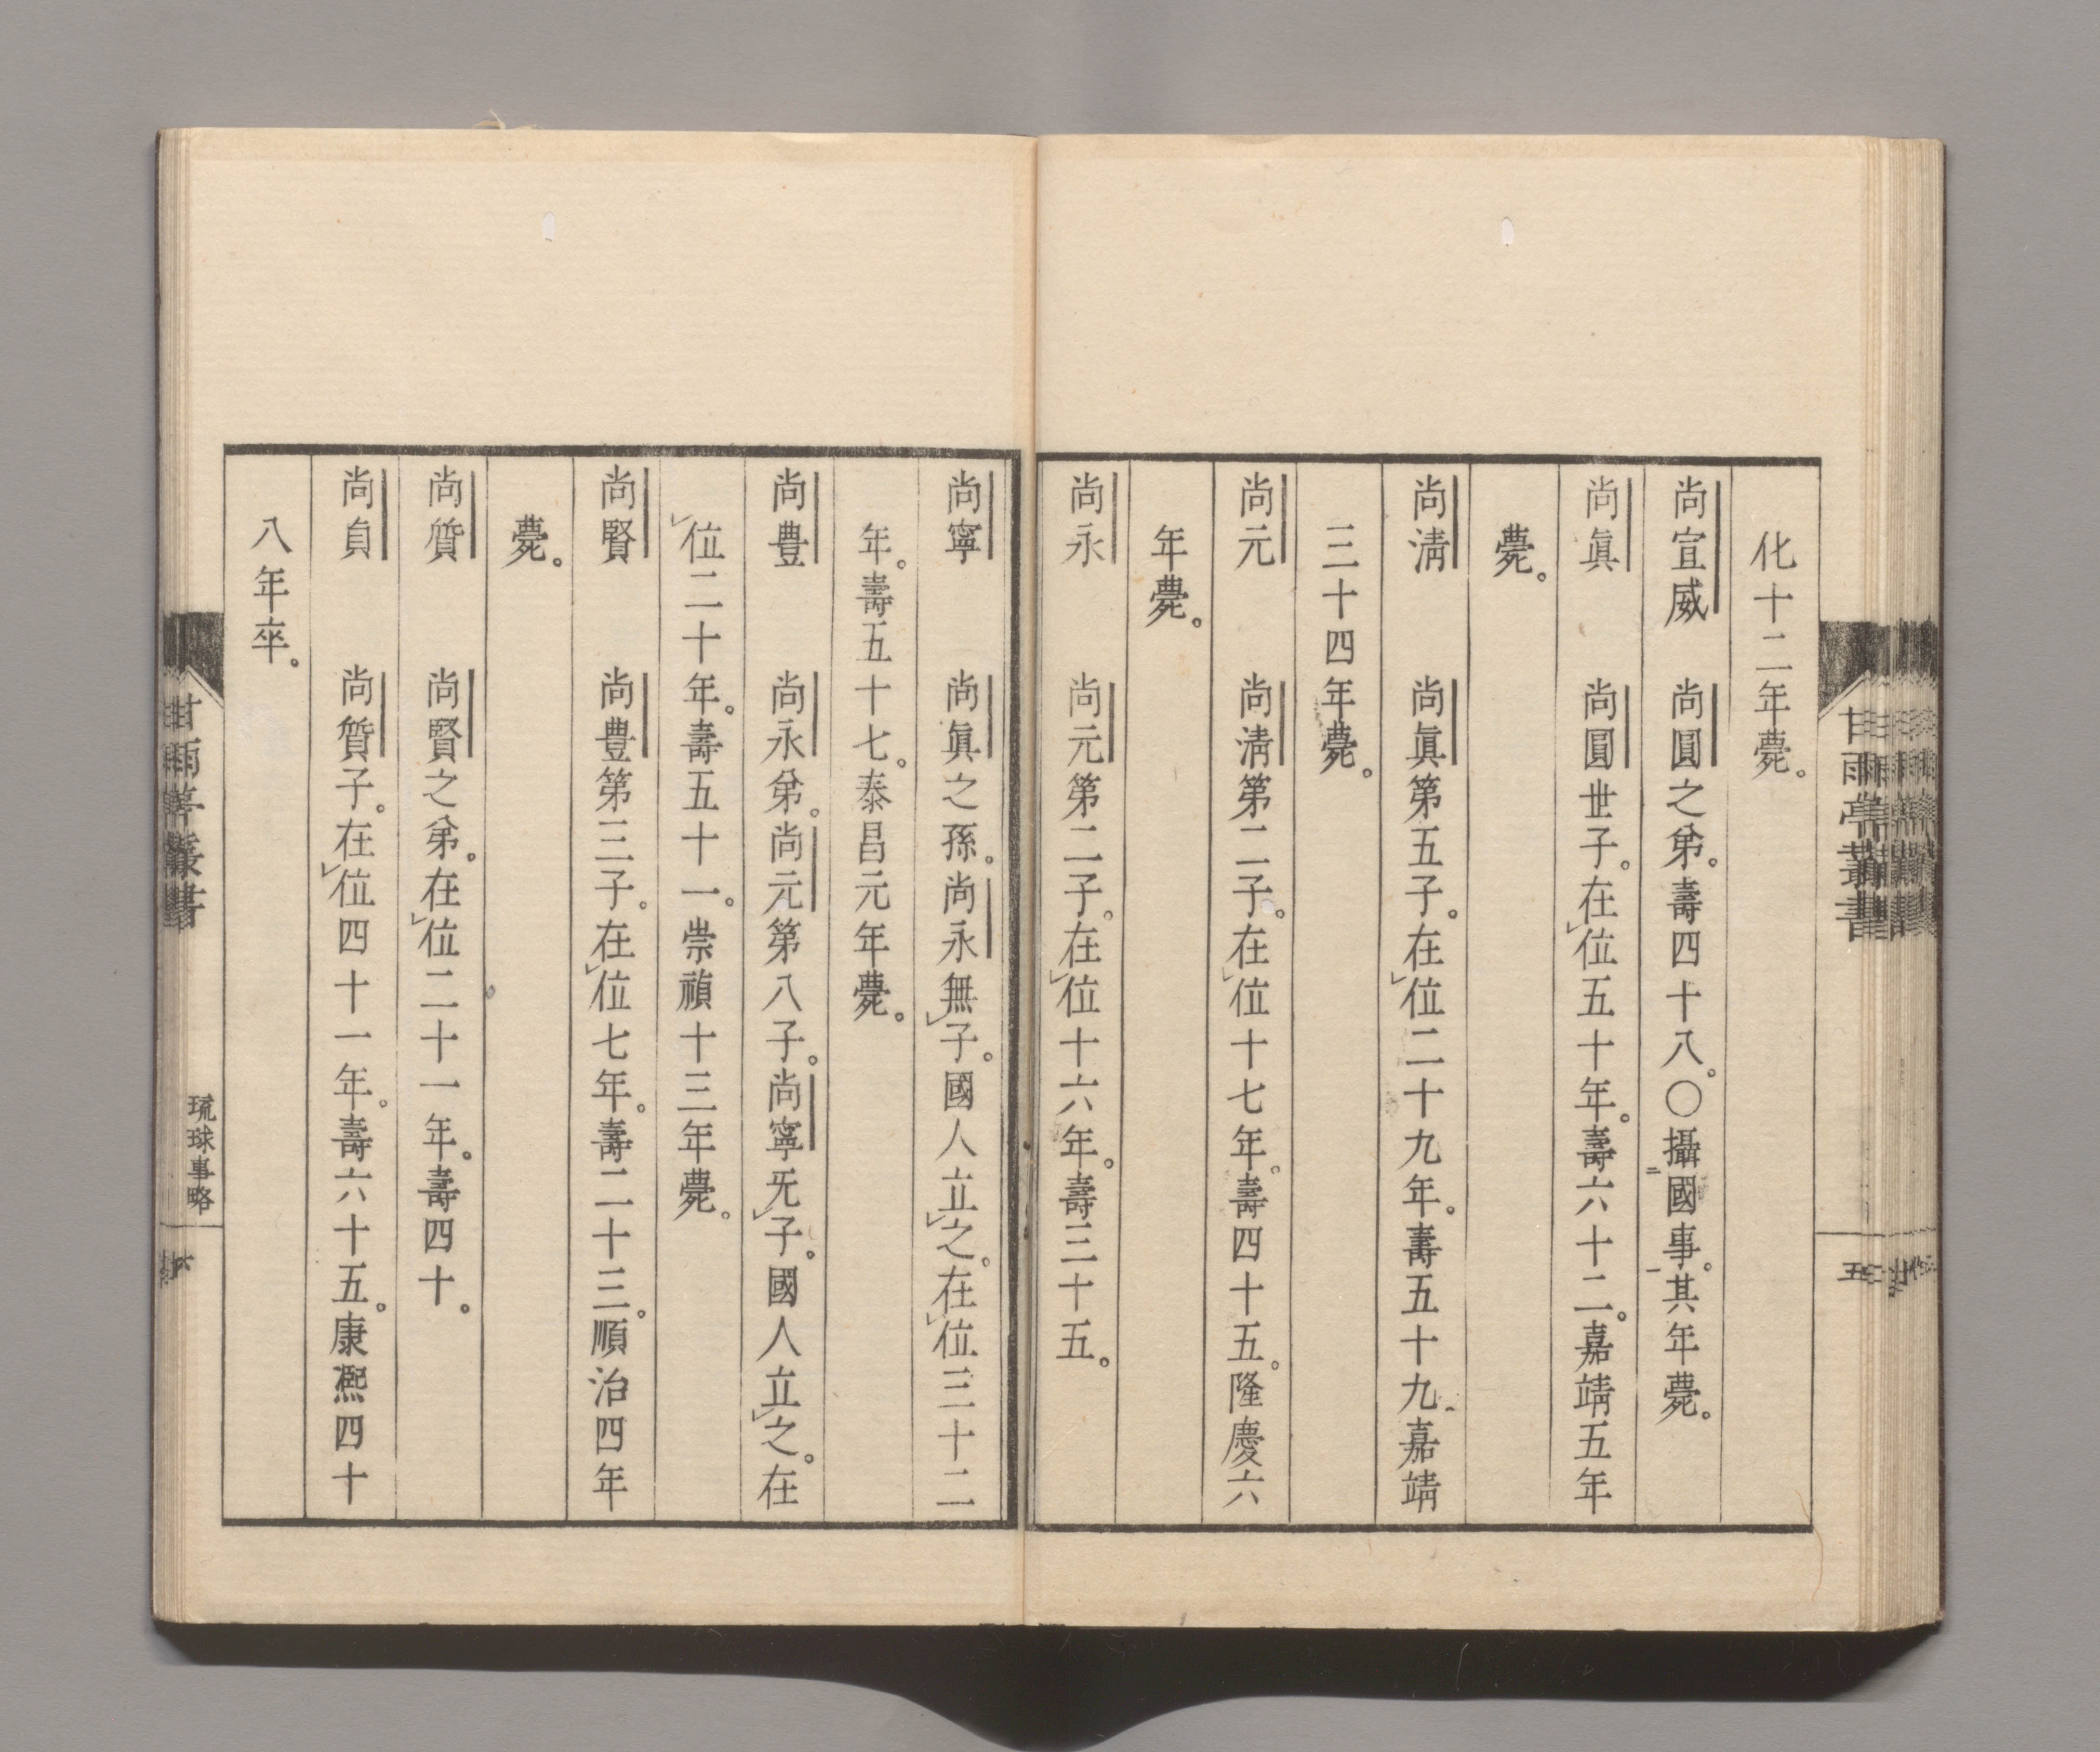 化十二年薨。
尚宣威　尚圓之弟。壽四十八。〇攝國事。其年薨。
尚眞　尚圓世子。在位五十年。壽六十二。嘉靖五年
薨。
尚淸　尚眞第五子。在位二十九年。壽五十九。嘉靖
三十四年薨。
尚元　尚淸第二子。在位十七年。壽四十五。隆慶六
年薨。
尚永　尚元第二子。在位十六年。壽三十五。
尚寧　尚眞之孫。尚永無子。國人立之。在位三十二
年。壽五十七。泰昌元年薨。
尚豊　尚永弟。尚元第八子。尚寧旡子。國人立之。在
位二十年。壽五十一。崇禎十三年薨。
尚賢　尚豊第三子。在位七年。壽二十三。順治四年
薨。
尚質　尚賢之弟。在位二十一年。壽四十。
尚貞　尚質子。在位四十一年。壽六十五。康熙四十
八年卒。
甘雨亭叢書
五
甘雨亭叢書
琉球事略
六